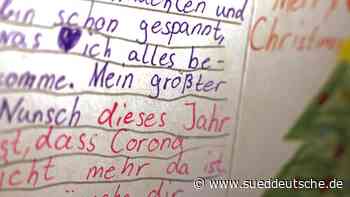 und
schon gespannt,
was ich alles be-
komme. Mein größter
Wunsch dieses Jahr
ist, dass Corona
nicht mehr da ist
dir
Christmas
© www.sueddeutsche.de